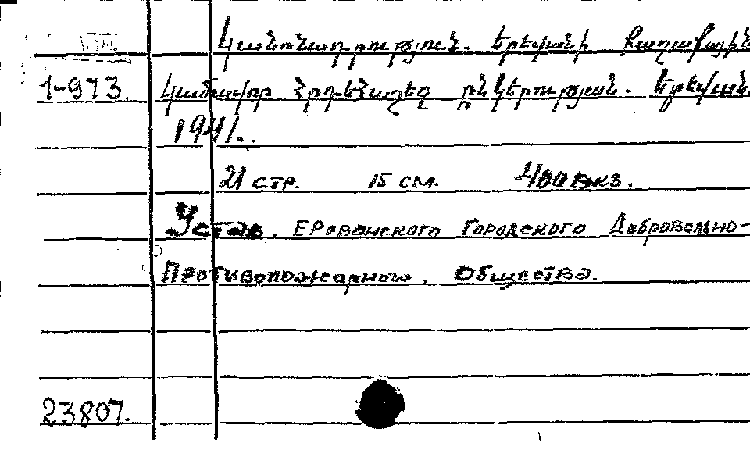 Կանոնադրություն. Երեվանի Քաղաքային
1-973. Կամավոր Հրդեհաշեջ ընկերության. Երեվան.
1941.
21 стр. 15 см. 400 экз.
Устав. Ереванского Городского Добровольно-
Противопожарного. Общества.
23807.